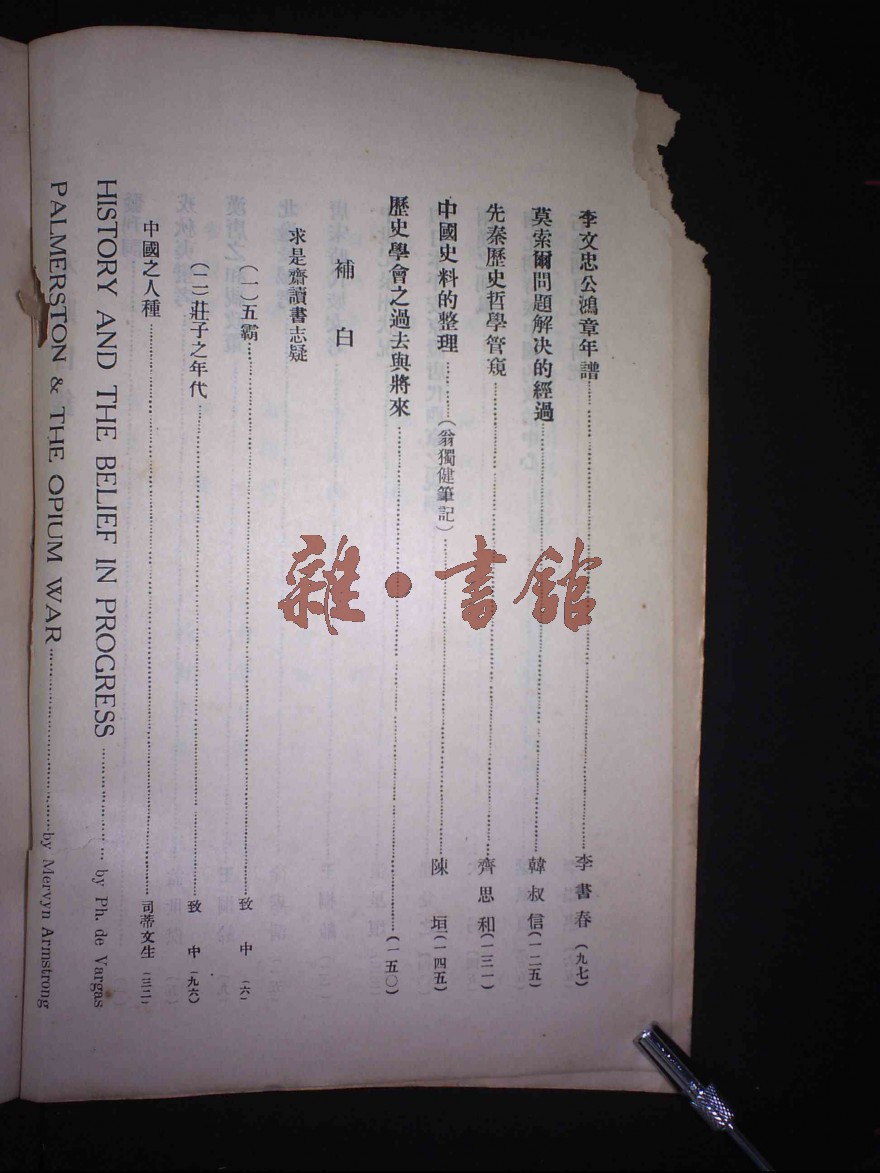 李文忠公鴻章年譜……李書春(九七)
莫索爾問題解决的經過……韓叔信(一二五)
先秦歷史哲學管窺……齊思和(一三一)
中國史料的整理……(翁獨健筆記)……陳垣(一四五)
歷史學會之過去與將來……(一五〇)
補白
求是齋讀書志疑
(一)五霸……致中(六)
(二)莊子之年代……致中(九六)
中國之人種……司蒂文生(三二)
HISTORY AND THE BELIEF IN PROGRESS…… by Ph. de Vargas
PALMERSTON & THE OPIUM WAR……by Mervyn Armstrong
雜·書館